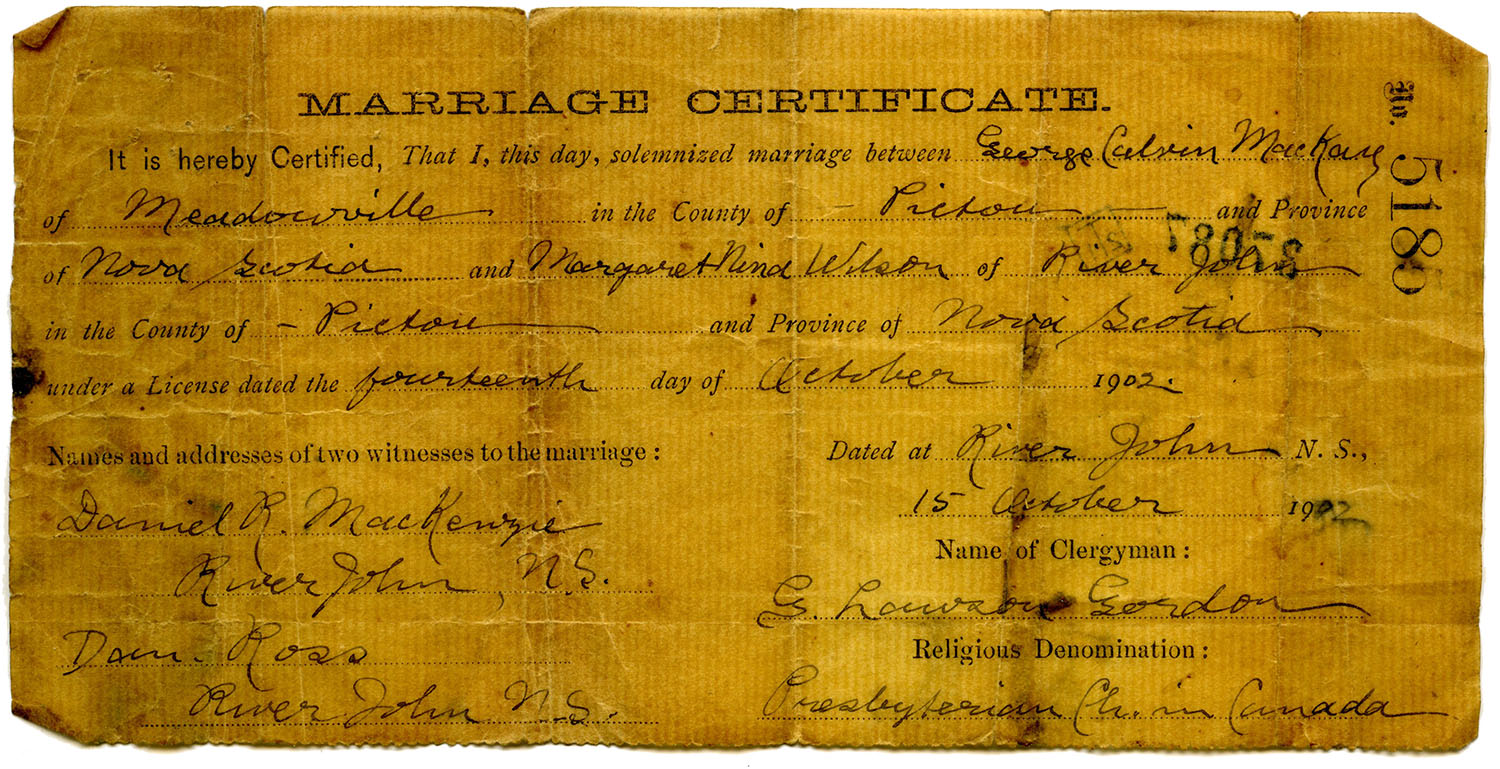 MARRIAGE CERTIFICATE.
No. 5185
It is hereby Certified, That I, this day, solemnized marriage between George Calvin MacKay
of Meadowville in the County of - Pictou - and Province
of Nova Scotia and Margaret Nina Wilson of River John
in the County of - Pictou and Province of Nova Scotia
under a License dated the fourteenth day of October 1902.
Names and addresses of two witnesses to the marriage :
Daniel R. MacKenzie
River John, N.S.
Dan. Ross
River John N.S.
Dated at River John N. S.,
15 October 1902
Name of Clergyman :
G. Lawson Gordon
Religious Denomination :
Presbyterian Ch. in Canada